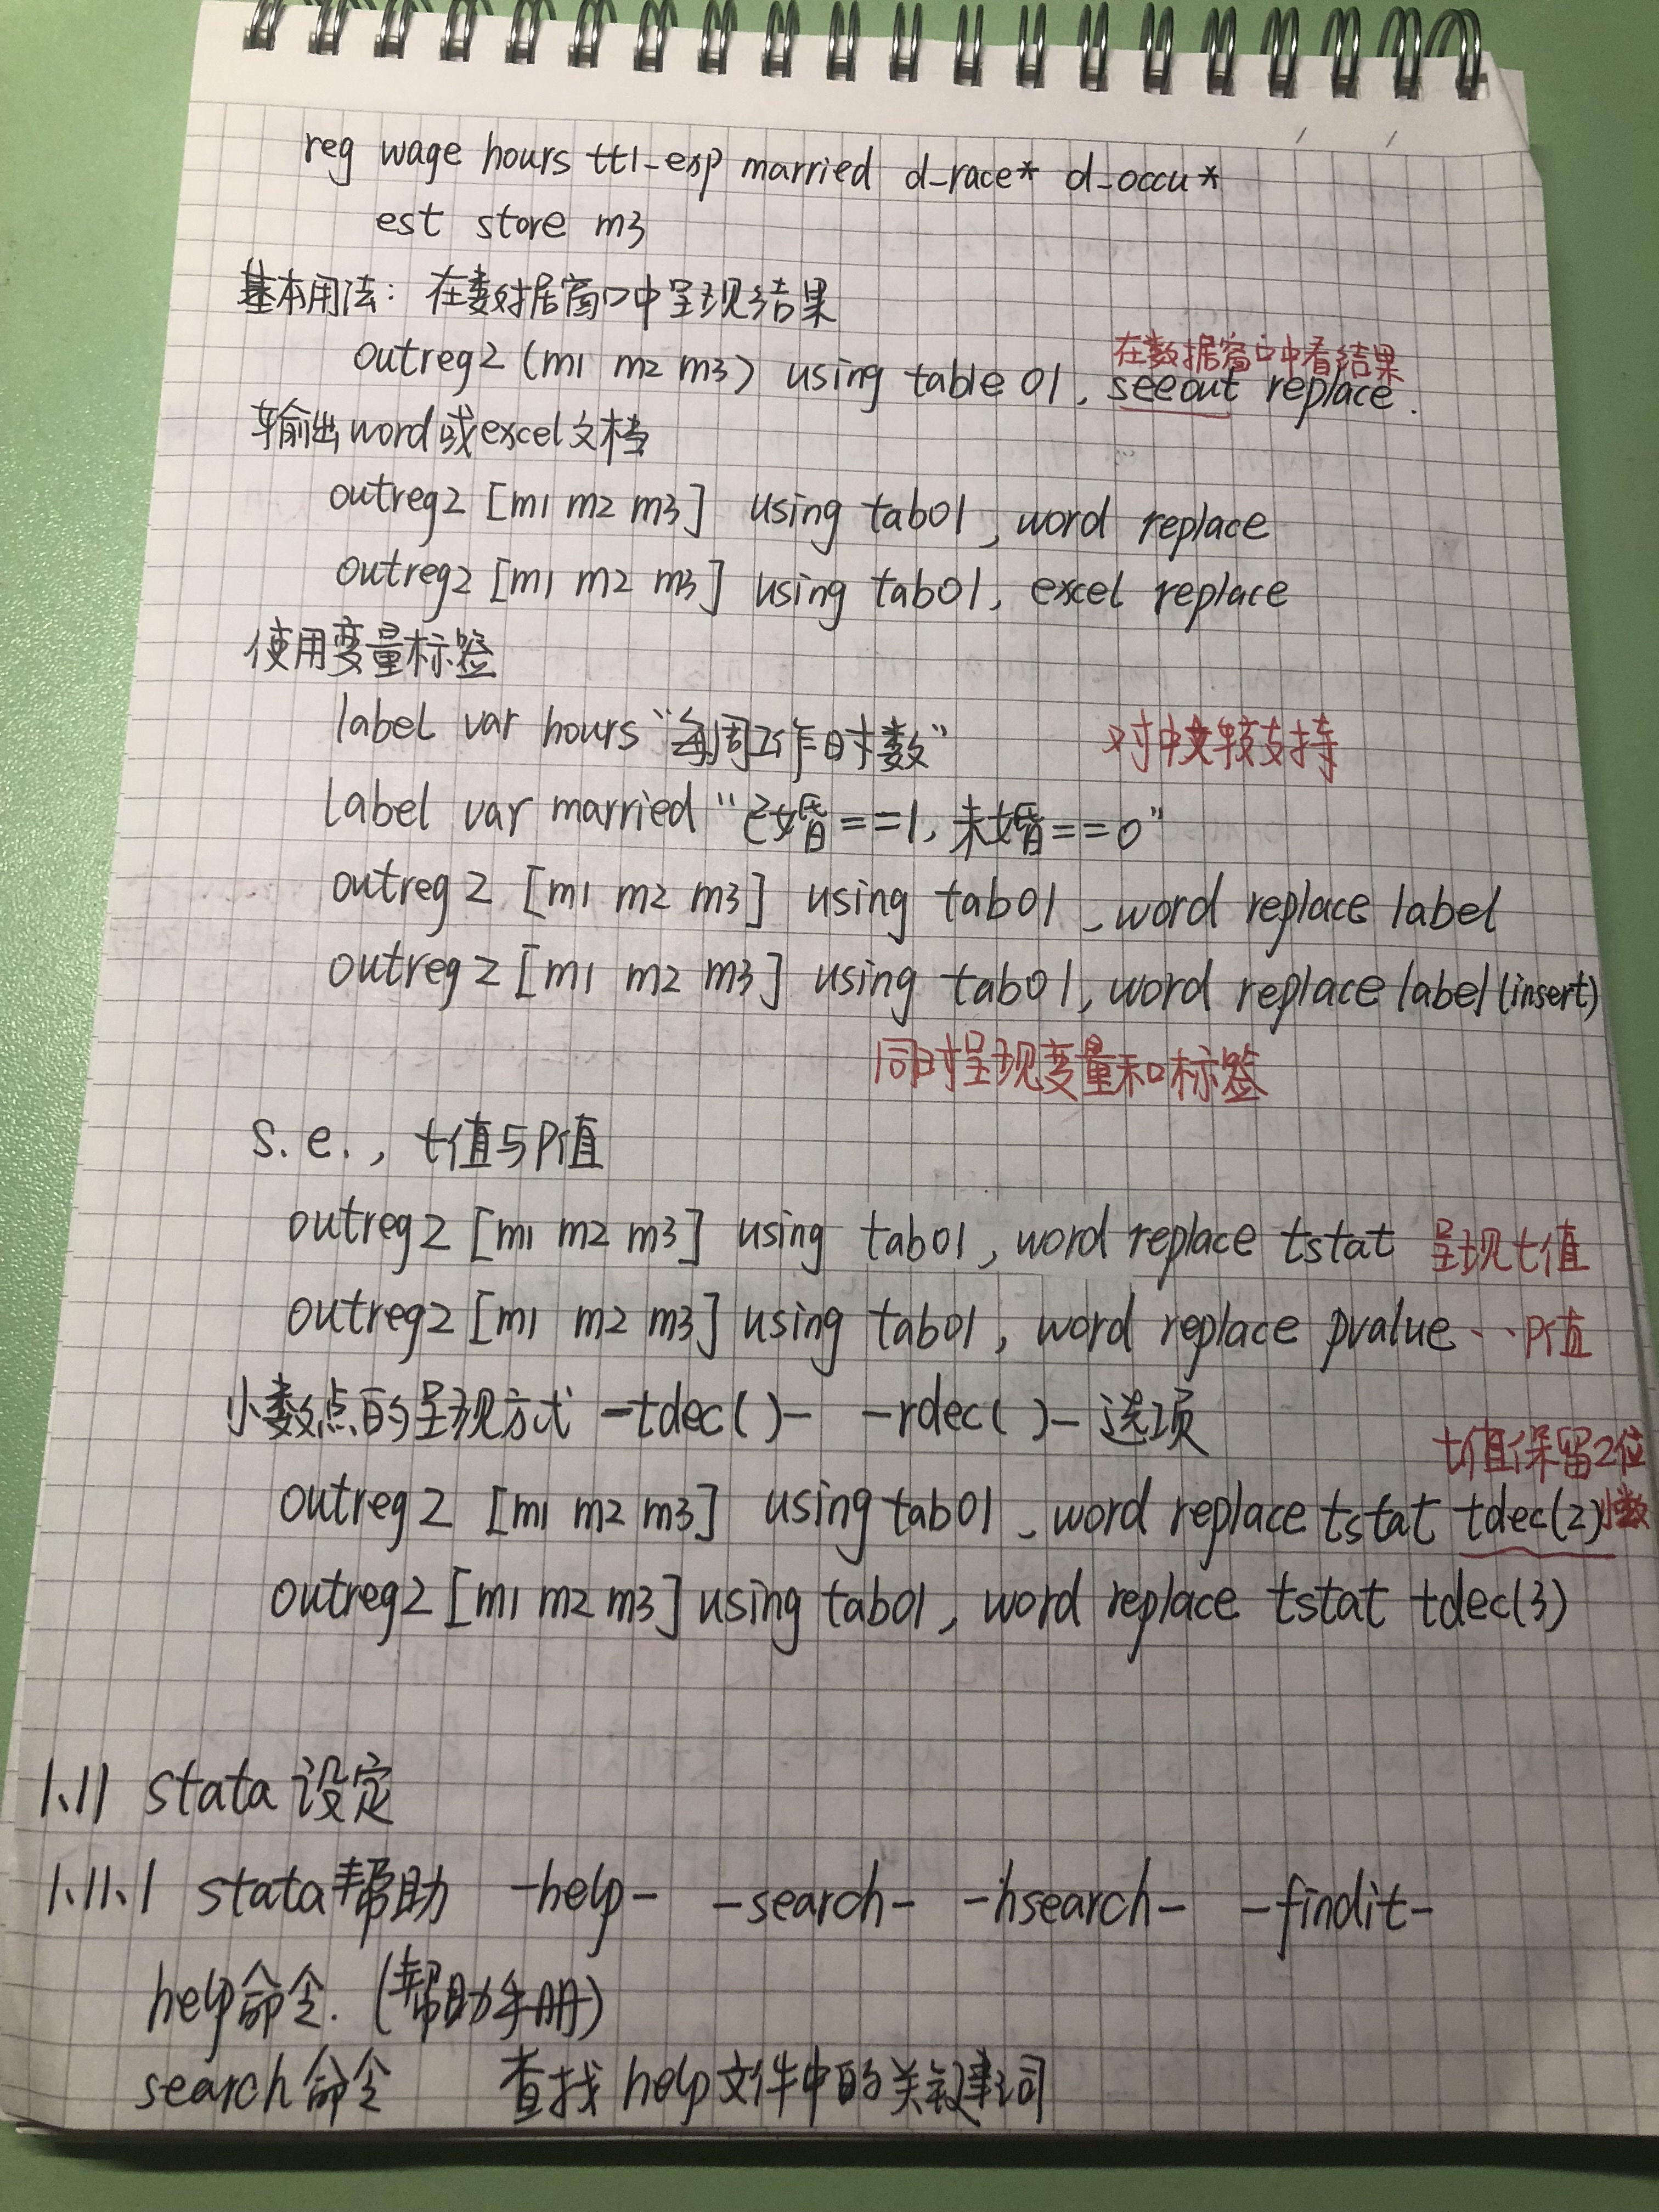 reg wage hours ttl-exp married d-race* d-occu*
est store m3
基本用法：在数据窗口中呈现结果
在数据窗口中看结果
outreg2 (m1 m2 m3) using table 01, seeout replace.
输出word或excel文档
outreg2 [m1 m2 m3] using tab01, word replace
outreg2 [m1 m2 m3] using tab01, excel replace
使用变量标签
label var hours “每周工作时数” 对中文较支持
label var married “已婚==1, 未婚==0”
outreg2 [m1 m2 m3] using tab01, word replace label
outreg2 [m1 m2 m3] using tab01, word replace label(insert)
同时呈现变量和标签
s.e., t值与P值
outreg2 [m1 m2 m3] using tab01, word replace tstat 呈现t值
outreg2 [m1 m2 m3] using tab01, word replace pvalue ···P值
小数点的呈现方式 -tdec()- -rdec()- 选项
t值保留2位小数
outreg2 [m1 m2 m3] using tab01, word replace tstat tdec(2)
outreg2 [m1 m2 m3] using tab01, word replace tstat tdec(3)
1.11 stata 设定
1.11.1 stata帮助 -help- -search- -hsearch- -findit-
help命令. (帮助手册)
search命令 查找help文件中的关键词